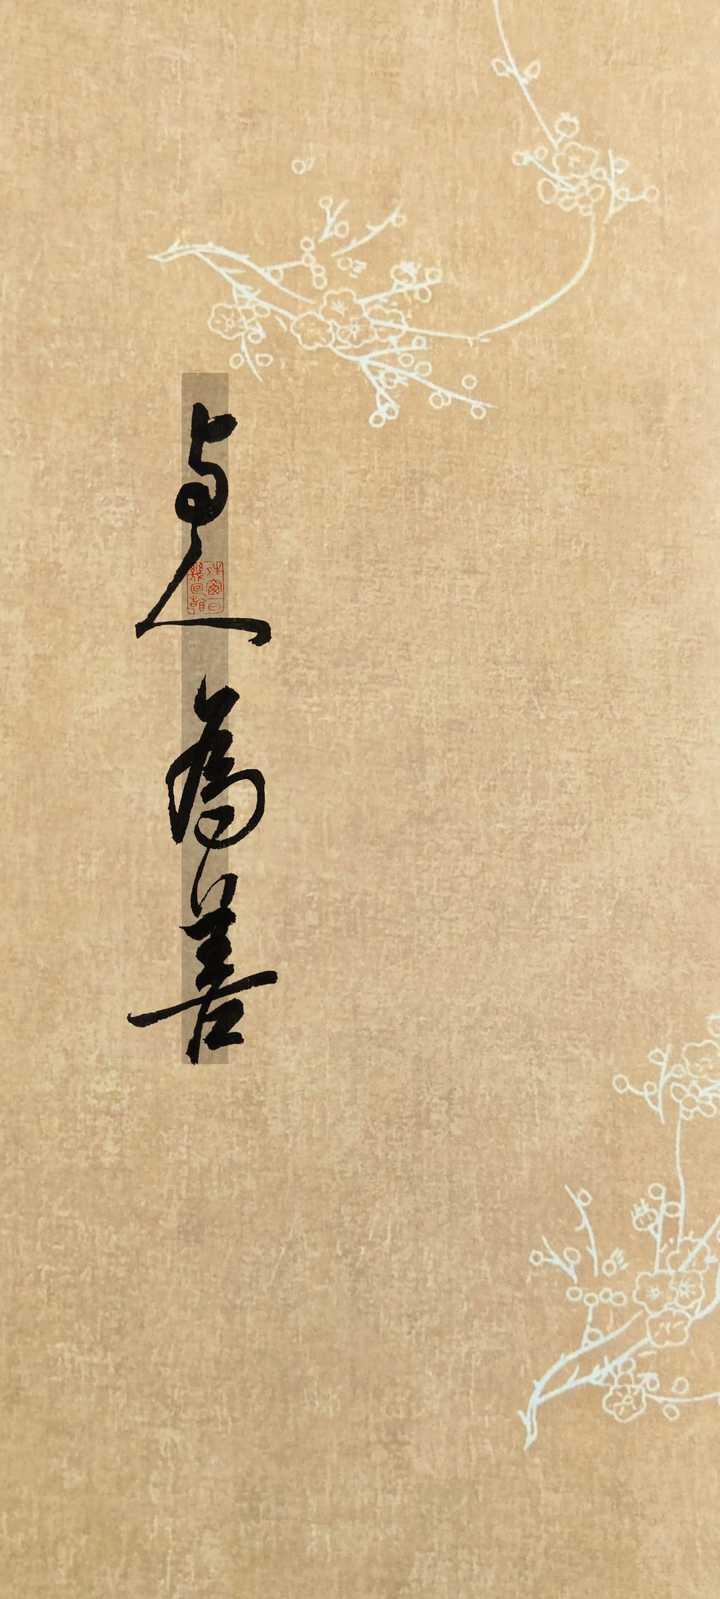 与人為善